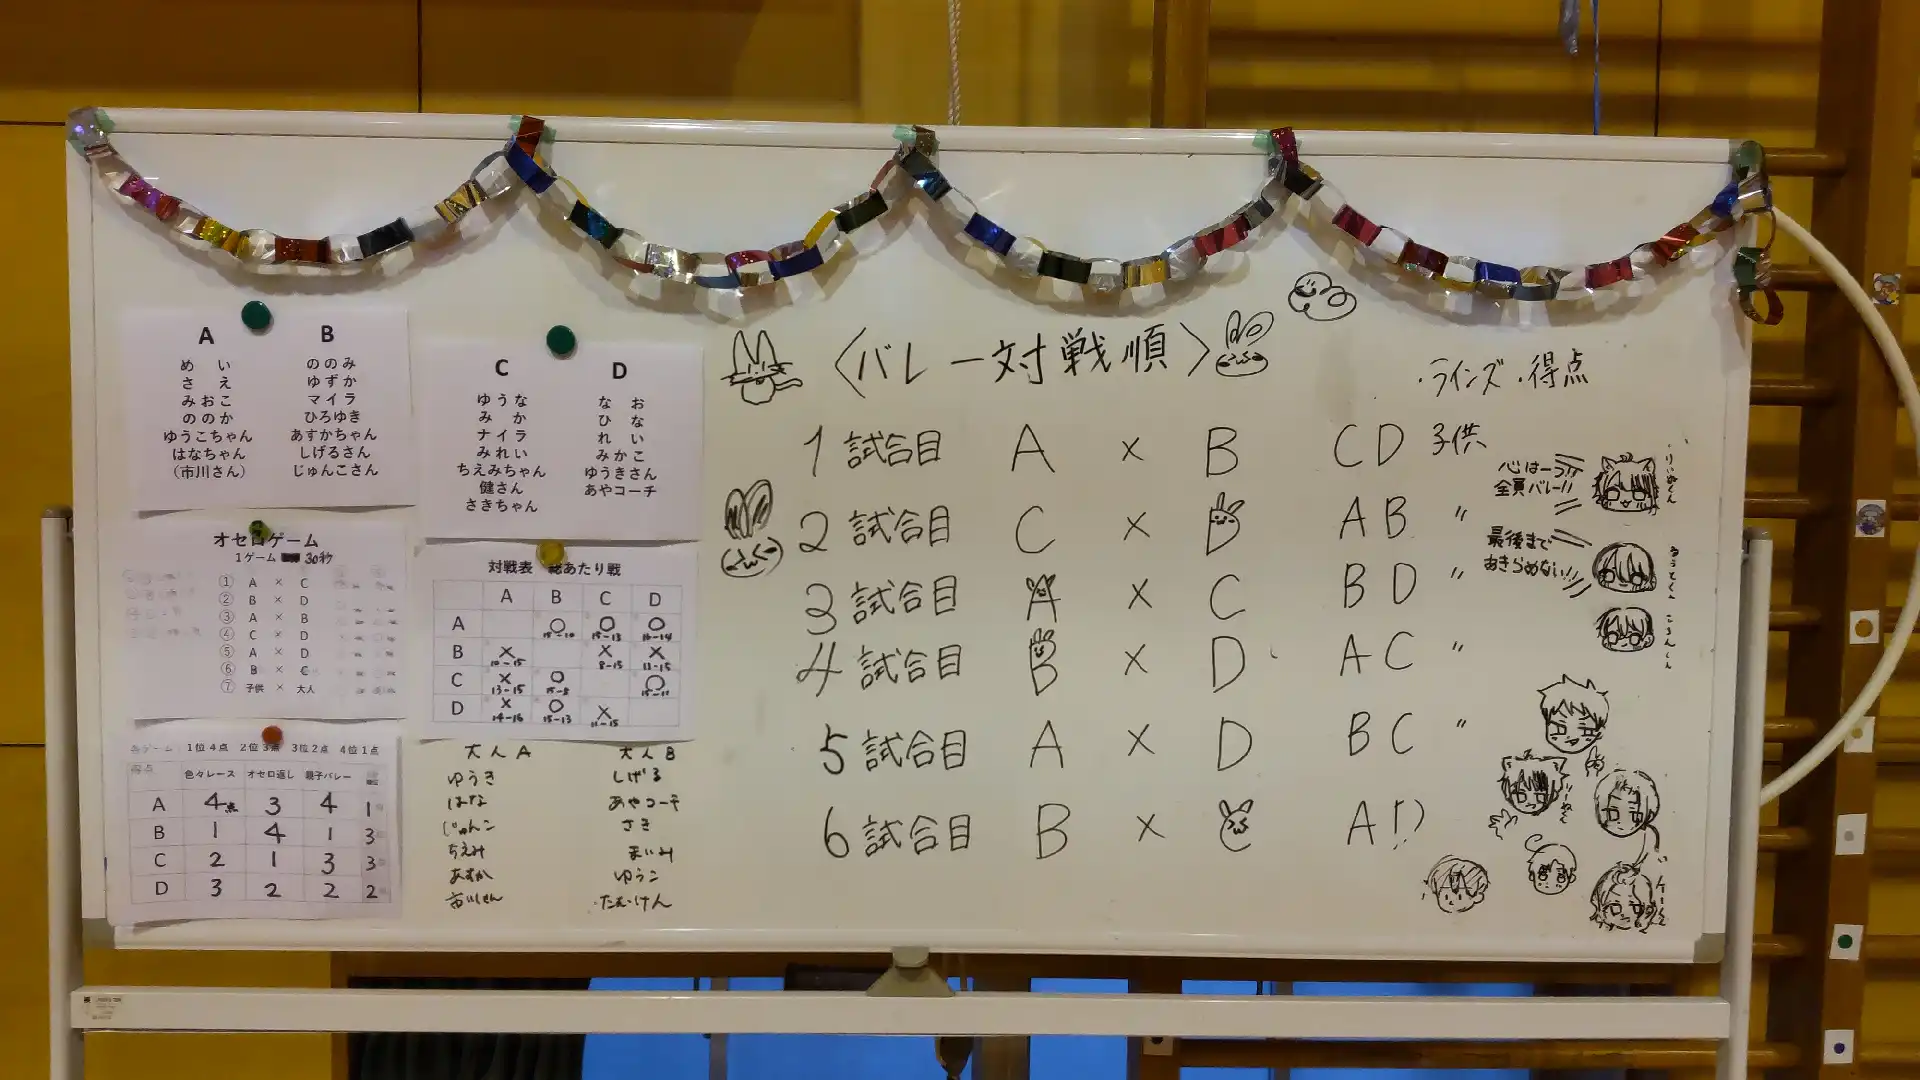 〈バレー対戦順〉
・ラインズ ・得点
1 試合目 A × B CD 子供
2 試合目 C × B AB 〃
3 試合目 A × C BD 〃
4 試合目 B × D AC 〃
5 試合目 A × D BC 〃
6 試合目 B × C A!?
心は一つ!!
全員バレー!!
最後まで
あきらめない!!
A B
めい ののみ
さえ ゆずか
みおこ マイラ
ののか ひろゆき
ゆうこちゃん あすかちゃん
はなちゃん しげるさん
(市川さん) じゅんこさん
C D
ゆうな なお
みか ひな
ナイラ れい
みれい みかこ
ちえみちゃん ゆうきさん
健さん あやコーチ
さきちゃん
オセロゲーム
1ゲーム 30秒
① A × C
② B × D
③ A × B
④ C × D
⑤ A × D
⑥ B × C
⑦ 子供 × 大人
対戦表 総あたり戦
A B C D
A ○ 15-10 ○ 15-13 ○ 16-14
B × 10-15 × 8-15 × 13-15
C × 13-15 ○ 15-8 ○ 15-11
D × 14-16 ○ 15-13 × 11-15
各ゲーム 1位4点 2位3点 3位2点 4位1点
得点 色々レース オセロ返し 親子バレー
A 4点 3 4 1
B 1 4 1 3
C 2 1 3 3
D 3 2 2 2
大人A 大人B
ゆうき しげる
はな あやコーチ
じゅんこ さき
ちえみ まいみ
あすか ゆうこ
たむけん